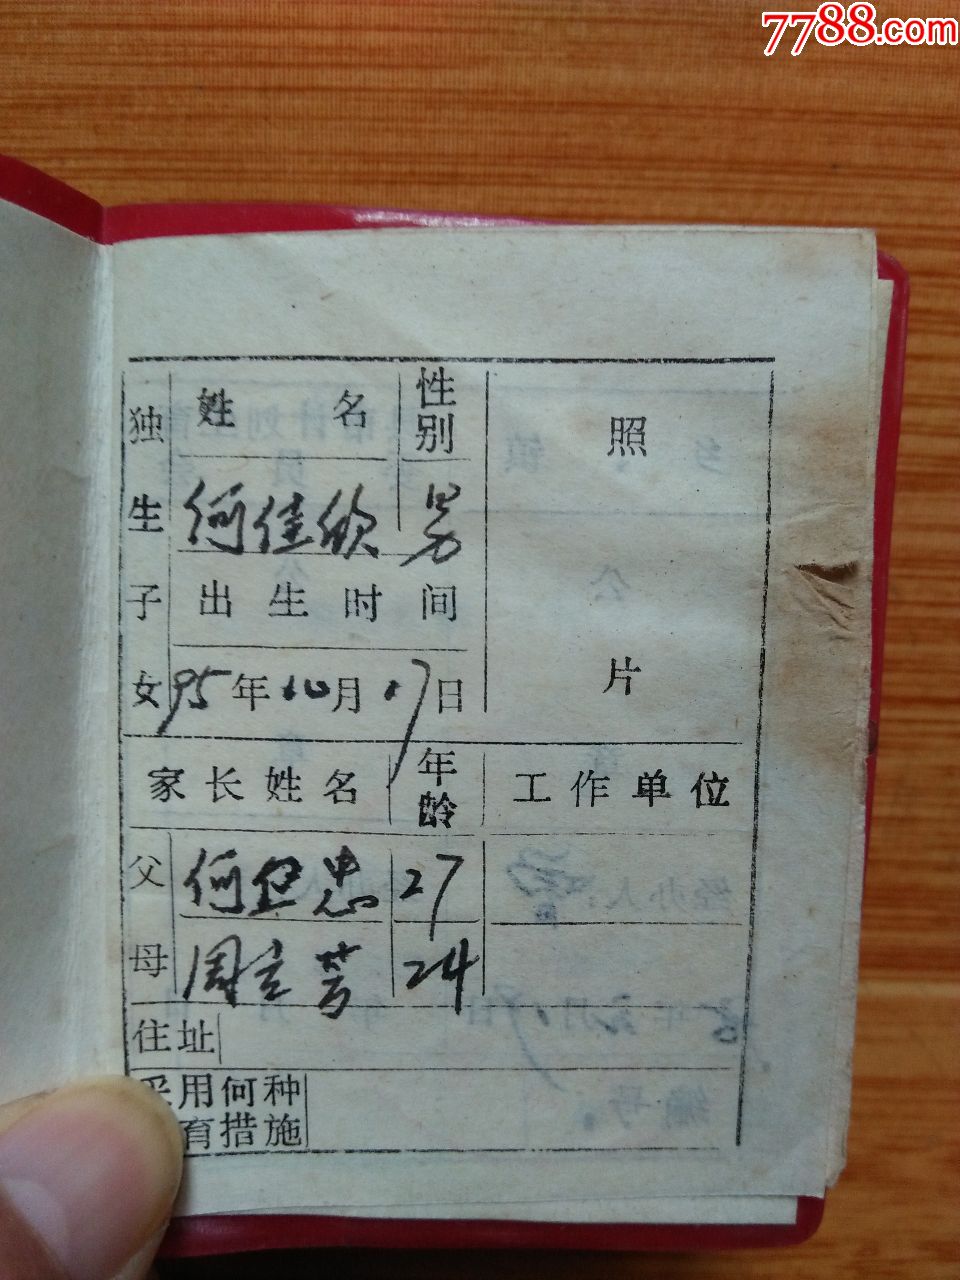 7788.com
独生子女
姓名 性别
何佳欣 男
出生时间
95年10月17日
照片
家长姓名 年龄 工作单位
父 何卫忠 27
母 周立芳 24
住址
采用何种
育措施